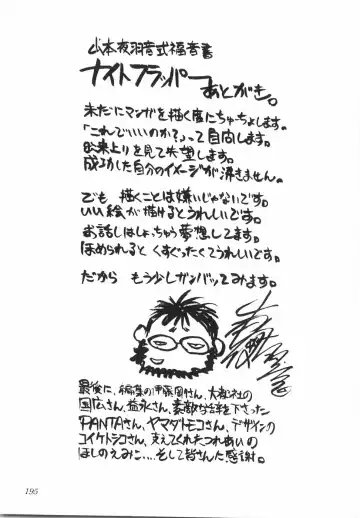 山本夜羽音式福音書
ナイトフラッパーあとがき。
未だにマンガを描く度にちゅうちょします。
「これでいいのか?」って自問します。
出来上りを見て失望します。
成功した自分のイメージが湧きません。
でも 描くことは嫌いじゃないです。
いい絵が描けるとうれしいです。
お話しはしょっちゅう夢想してます。
ほめられると くすぐったくてうれしいです。
だから もう少しガンバッてみます。
最後に、編集の伊藤剛さん、大都社の
国広さん、益永さん、素敵な詩を下さった
PANTAさん、ヤマダトモコさん、デザインの
コイケトシコさん、支えてくれたつれあいの
はしのえみこ…、そして皆さんに感謝。
195